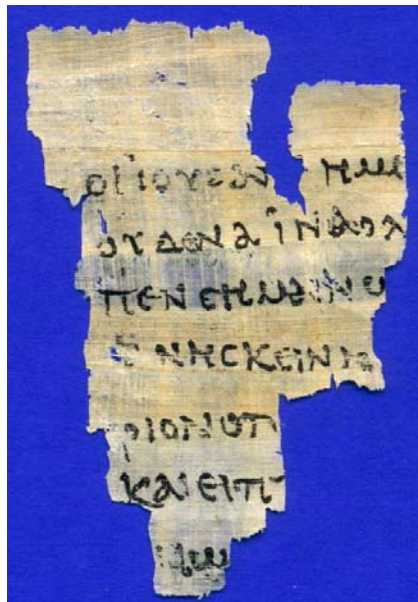 οιϊουδαι ημι
ουδενα ϊναολ
πενσημαινω
θνησκεινιη
ριονοπ
καιειπ